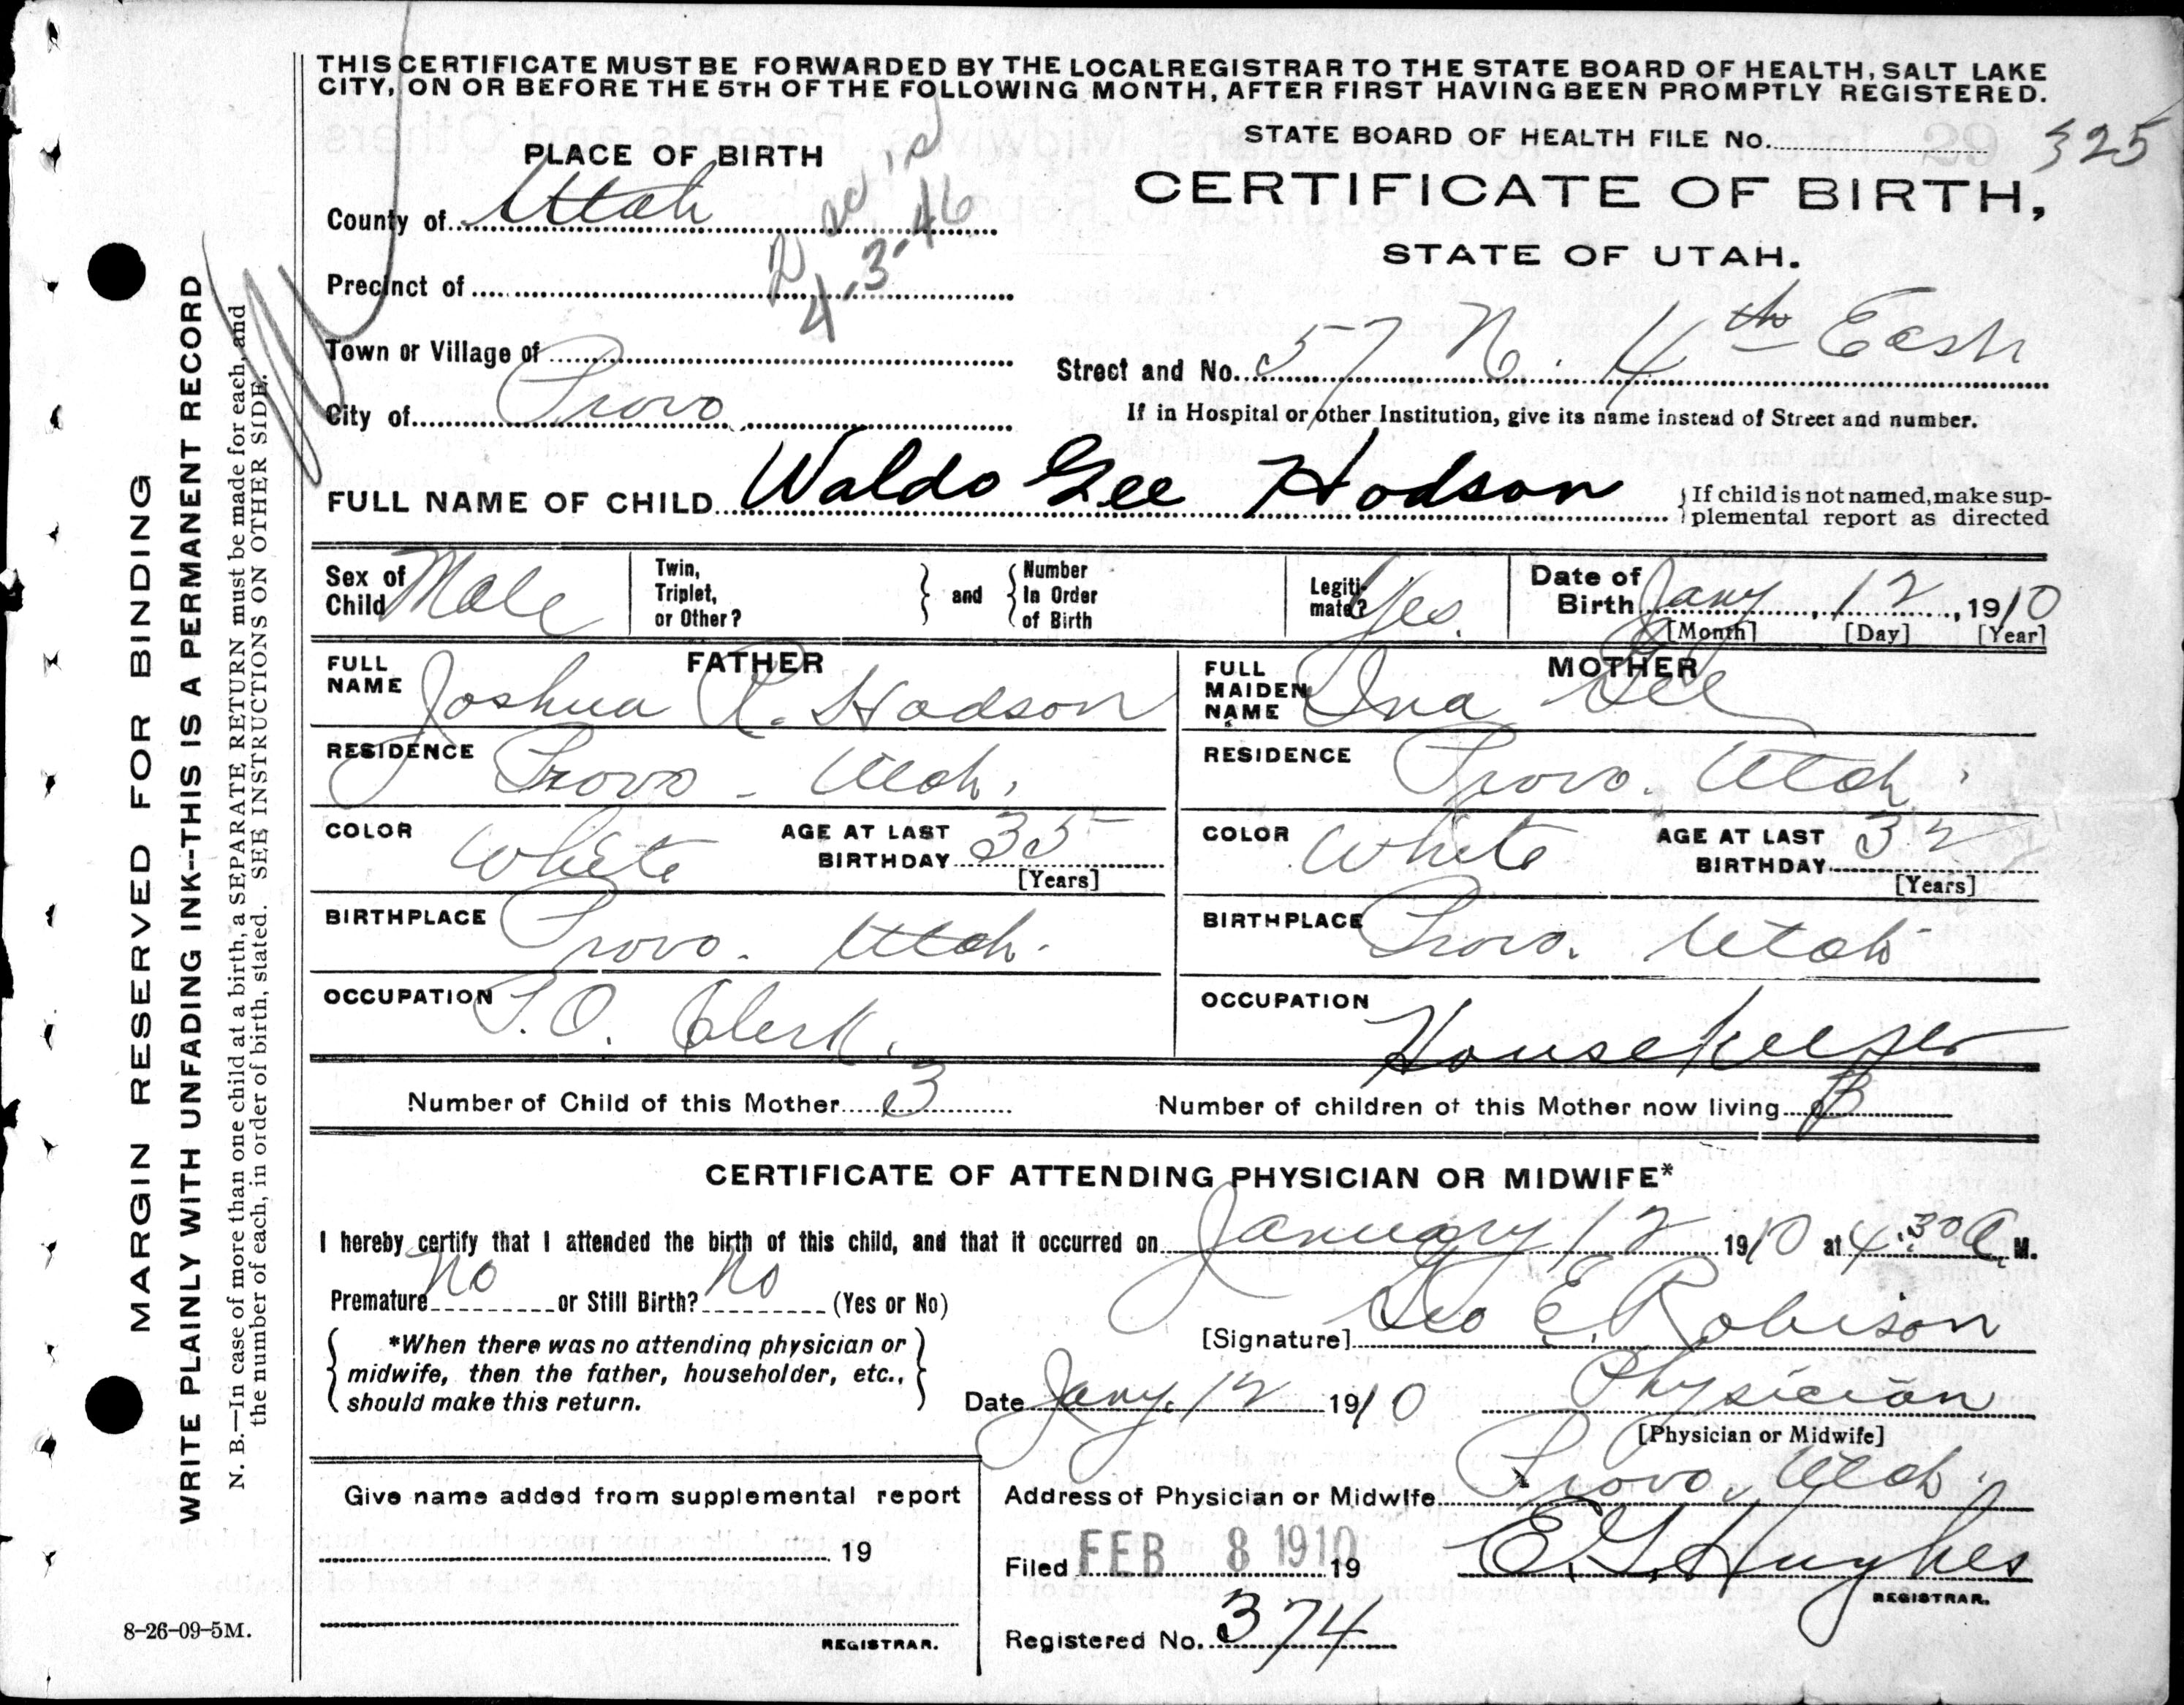 THIS CERTIFICATE MUST BE FORWARDED BY THE LOCAL REGISTRAR TO THE STATE BOARD OF HEALTH, SALT LAKE
CITY, ON OR BEFORE THE 5TH OF THE FOLLOWING MONTH, AFTER FIRST HAVING BEEN PROMPTLY REGISTERED.
STATE BOARD OF HEALTH FILE No. 325
PLACE OF BIRTH
CERTIFICATE OF BIRTH,
STATE OF UTAH.
County of Utah
4-3-46
Precinct of
Town or Village of
Street and No. 57 N. 4th East
City of Provo
If in Hospital or other Institution, give its name instead of Street and number.
FULL NAME OF CHILD Waldo Gee Hodson
If child is not named, make sup-
plemental report as directed
Sex of Child Male
Twin, Triplet, or Other?
and
Number In Order of Birth
Legiti-mate? Yes.
Date of Birth Jany 12, 1910
[Month] [Day] [Year]
FATHER
FULL NAME Joshua R. Hodson
RESIDENCE Provo - Utah.
COLOR White AGE AT LAST BIRTHDAY 35
[Years]
BIRTHPLACE Provo. Utah.
OCCUPATION P.O. Clerk.
MOTHER
FULL MAIDEN NAME Ina Gee
RESIDENCE Provo. Utah.
COLOR White AGE AT LAST BIRTHDAY 32
[Years]
BIRTHPLACE Provo. Utah
OCCUPATION Housekeeper
Number of Child of this Mother 3
Number of children of this Mother now living 3
CERTIFICATE OF ATTENDING PHYSICIAN OR MIDWIFE*
I hereby certify that I attended the birth of this child, and that it occurred on January 12 1910 at 4:30 A. M.
Premature No or Still Birth? No (Yes or No)
[Signature] Geo E. Robison
*When there was no attending physician or
midwife, then the father, householder, etc.,
should make this return.
Date Jany. 12 1910
Physician
[Physician or Midwife]
Give name added from supplemental report
19
REGISTRAR.
Address of Physician or Midwife Provo, Utah.
Filed FEB 8 1910 19
E.G. Hughes
REGISTRAR.
Registered No. 374
8-26-09-5M.
MARGIN RESERVED FOR BINDING
WRITE PLAINLY WITH UNFADING INK--THIS IS A PERMANENT RECORD
N. B.—In case of more than one child at a birth, a SEPARATE RETURN must be made for each, and
the number of each, in order of birth, stated. SEE INSTRUCTIONS ON OTHER SIDE.